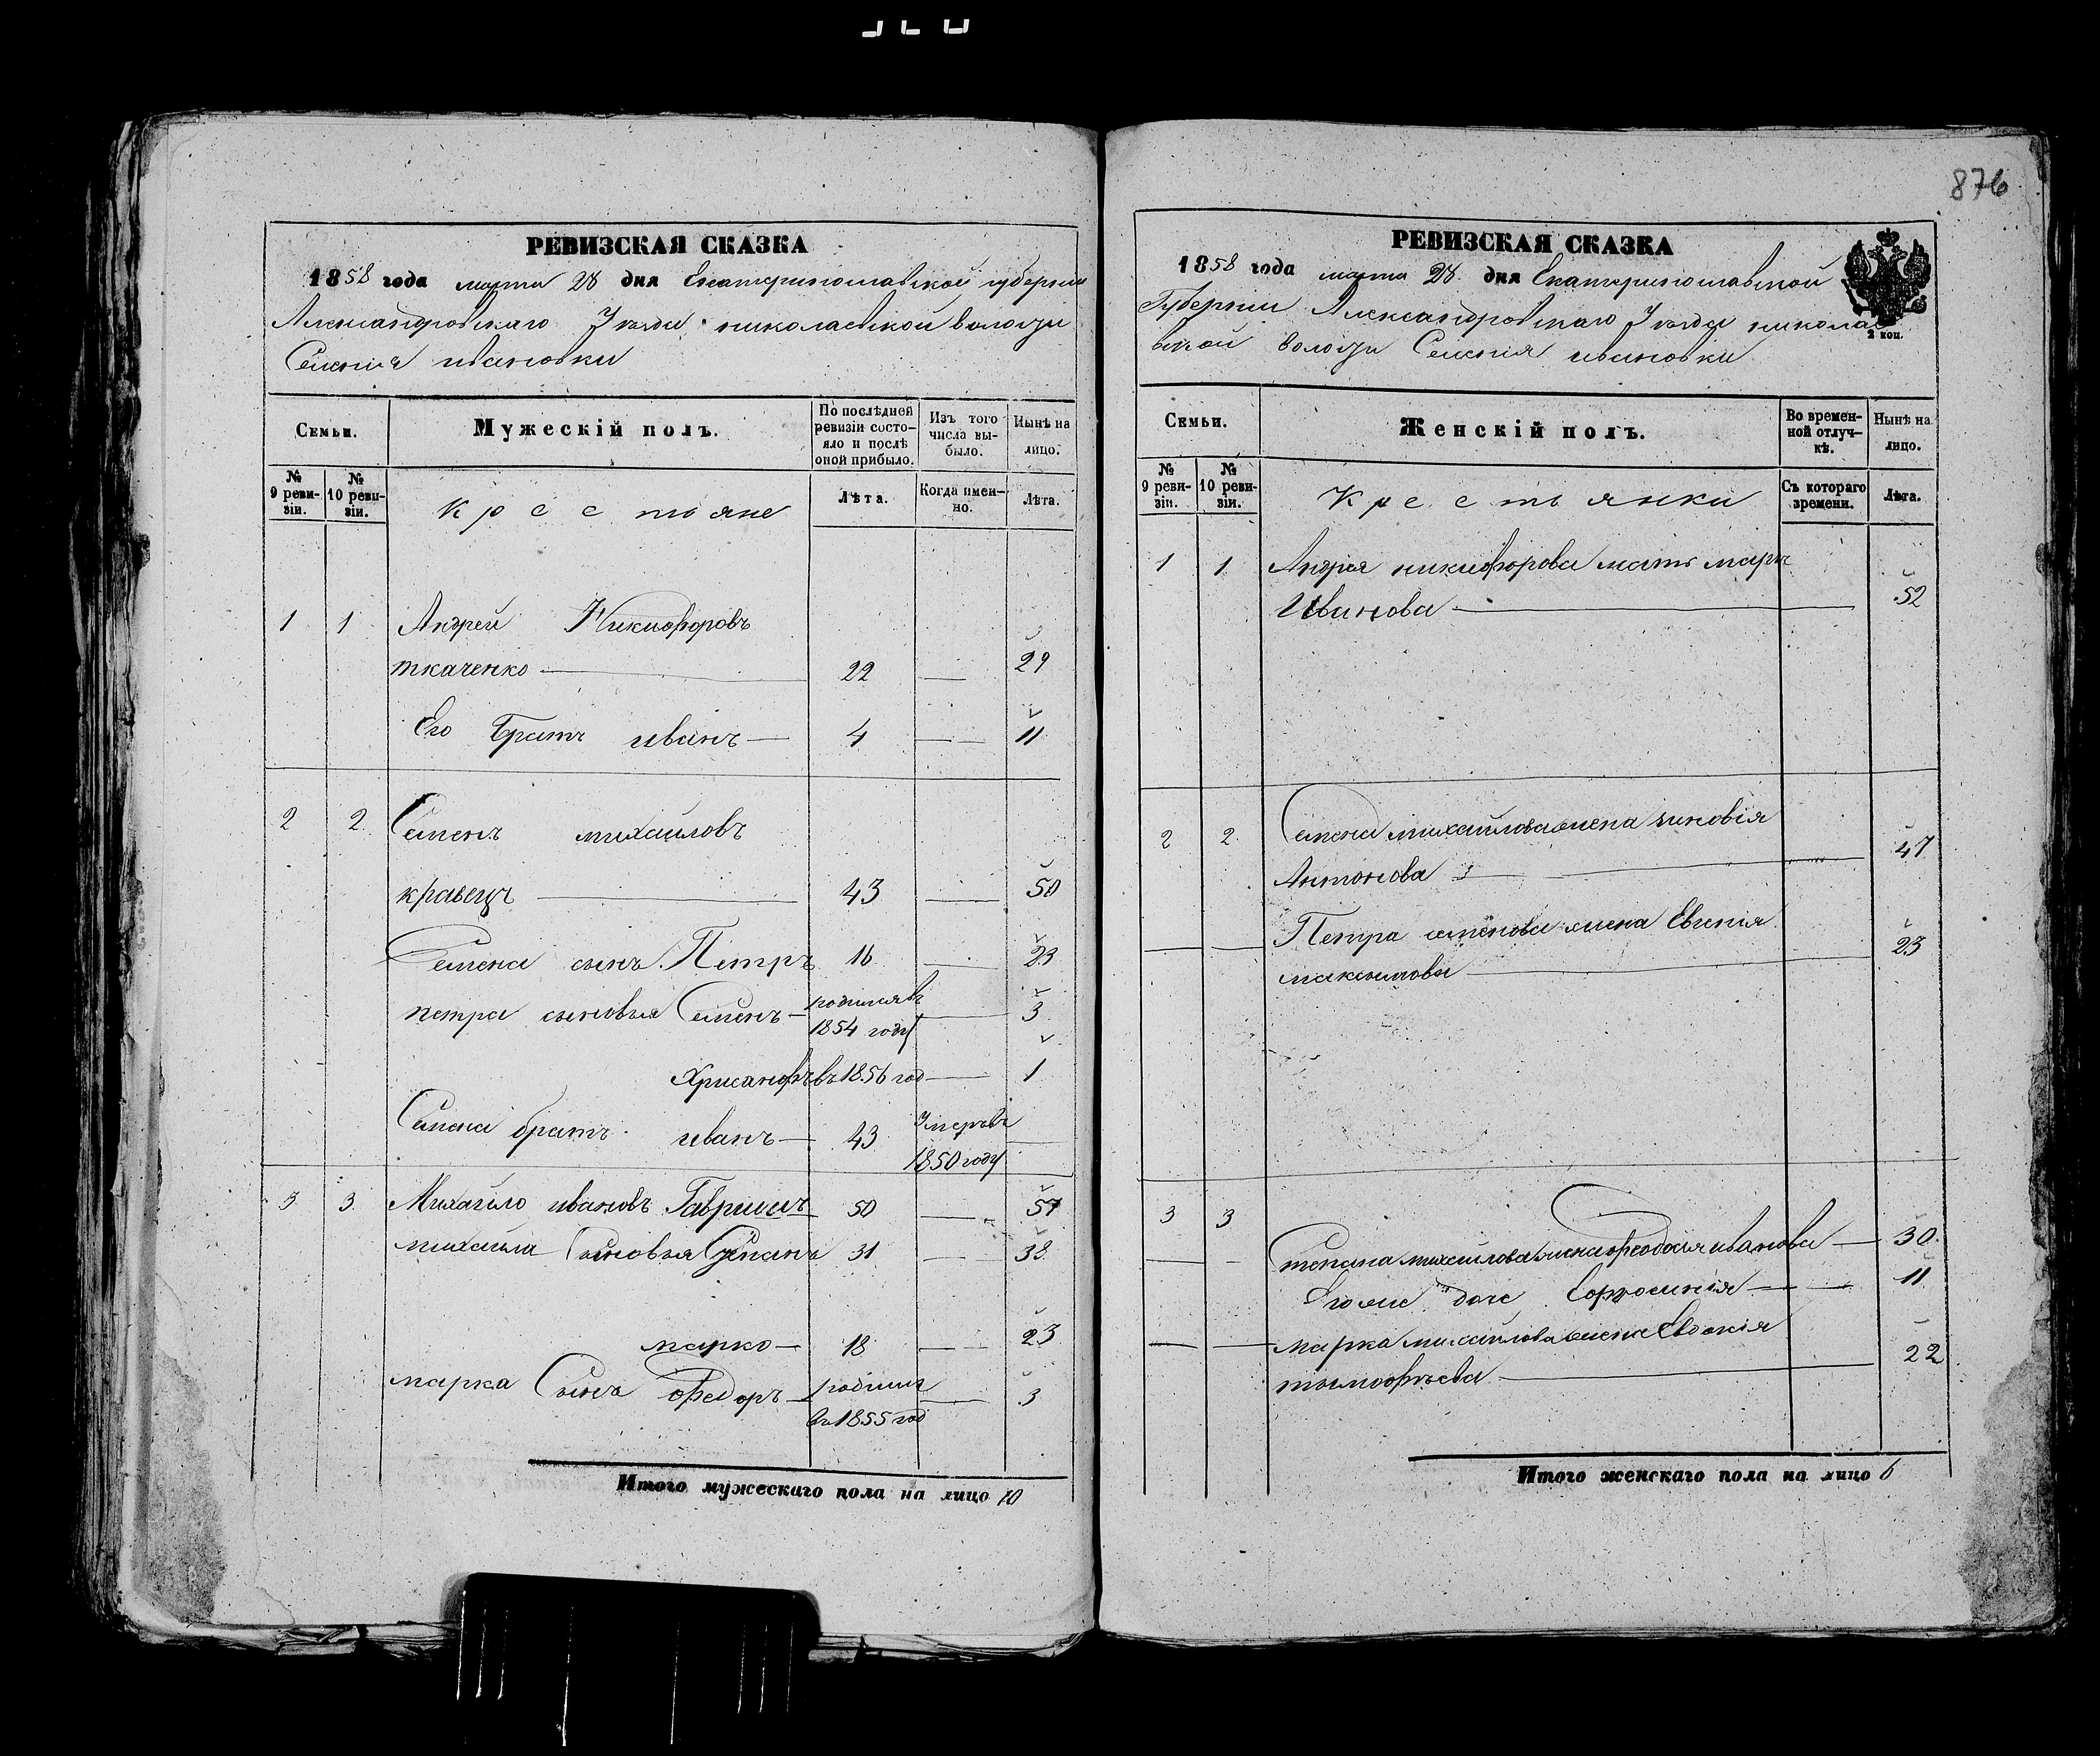 876
РЕВИЗСКАЯ СКАЗКА
1858 года марта 28 дня Екатеринославской губернии
Александровскаго Уезда николаевской волости
Селения ивановки
Семьи.
Мужескій полъ.
По послѣдней ревизіи состояло и послѣ оной прибыло.
Изъ того числа выбыло.
Нынѣ на лицо.
№ 9 ревизіи.
№ 10 ревизіи.
Крестьяне
Лѣта.
Когда именно.
Лѣта.
1 1 Андрей Никифоровъ
ткаченко — 22 — 29
Его Братъ иванъ — 4 — 11
2 2 Семенъ михайловъ
кравецъ — 43 — 50
Семена сынъ Петръ 16 — 23
петра сыновья Семенъ — родился въ 1854 году — 3
Хрисанфъ въ 1856 год — 1
Семена братъ иванъ — 43 Умеръ въ 1850 году —
3 3 Михайло ивановъ Гавришъ 50 — 57
михайла Сыновья Степанъ 31 — 38
марко — 18 — 23
марка Сынъ Федоръ — родился въ 1855 год — 3
Итого мужескаго пола на лицо 10
РЕВИЗСКАЯ СКАЗКА
1858 года марта 28 дня Екатеринославской
Губернии Александровскаго Уезда николае
вской волости Селения ивановки
2 коп.
Семьи.
Женскій полъ.
Во временной отлучкѣ.
Нынѣ на лицо.
№ 9 ревизіи.
№ 10 ревизіи.
Крестьянки
Съ котораго времени.
Лѣта.
1 1 Андрея никифорова мать марья
Иванова — 52
2 2 Семена михайлова жена зиновія
Антонова — 47
Петра семенова жена Евгенія
максимова — 23
3 3
Степана михайлова жена феодосия иванова — 30
Его же дочь Ефросинія — 11
марка михайлова жена Евдокія
тымофѣева — 22
Итого женскаго пола на лицо 6